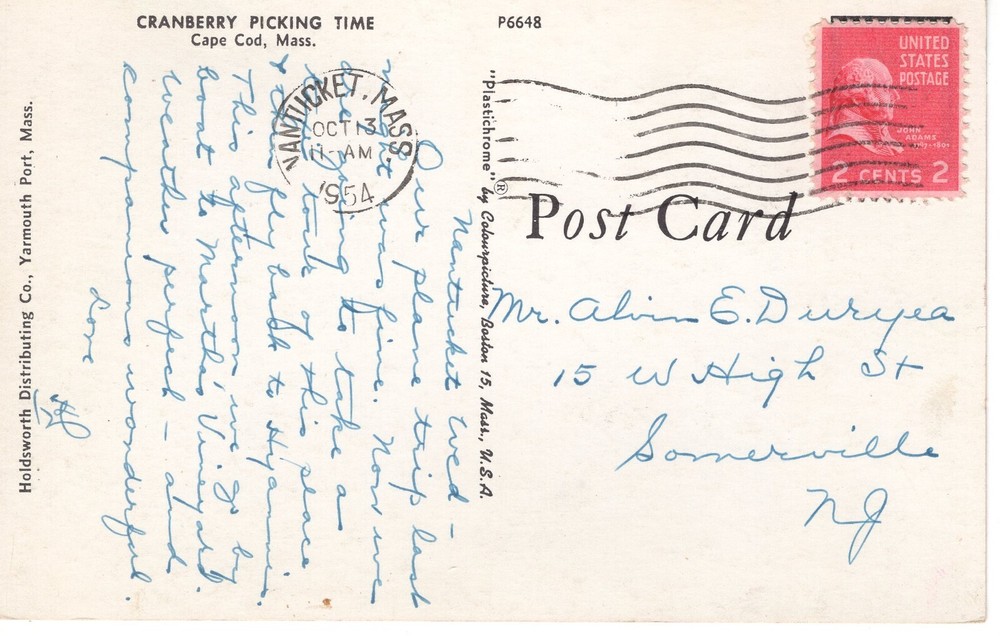 CRANBERRY PICKING TIME
Cape Cod, Mass.
P6648
UNITED
STATES
POSTAGE
JOHN
ADAMS
1797-1801
2 CENTS 2
NANTUCKET, MASS.
OCT 13
11-AM
1954
Post Card
Nantucket Wed -
Our plane trip last
night was fine. Now we
are going to take a
taxi tour of this place
& then fly back to Hyannis.
This afternoon we go by
boat to Martha's Vineyard.
Weather perfect - and
companions wonderful.
Love
Mr. Alvin E. Duryea
15 W High St
Somerville
NJ
"Plastichrome" ® by Colourpicture, Boston 15, Mass., U.S.A.
Holdsworth Distributing Co., Yarmouth Port, Mass.